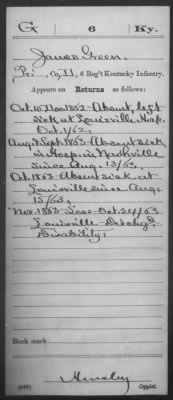 G 6 Ky.
James Green
Pri, Co. H, 6 Reg't Kentucky Infantry.
Appears on Returns as follows:
Oct. to Nov. 1862 Absent, left
sick at Louisville Hosp.
Oct. 1/62.
Aug & Sept. 1863 Absent sick,
in Hosp. in Nashville
since Aug. 15/63.
Oct. 1863 Absent sick at
Louisville since Aug.
15/63.
Nov. 1863 Loss Oct. 24/63
Louisville Dischgd.
Disability.
Book mark
(646)
Copyist.